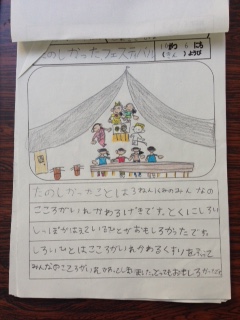 たのしかったフェスティバル
10がつ 6 にち
(きん)ようび
たのしかったことは3ねん1くみのみんなの
こころがいれかわるげきです。とくにしろい
しっぽがはえているひとがおもしろかったです。
しろいひとはこころがいれかわるくすりをふって
みんなのこころがいれかわってしま
とってもおもしろかったです